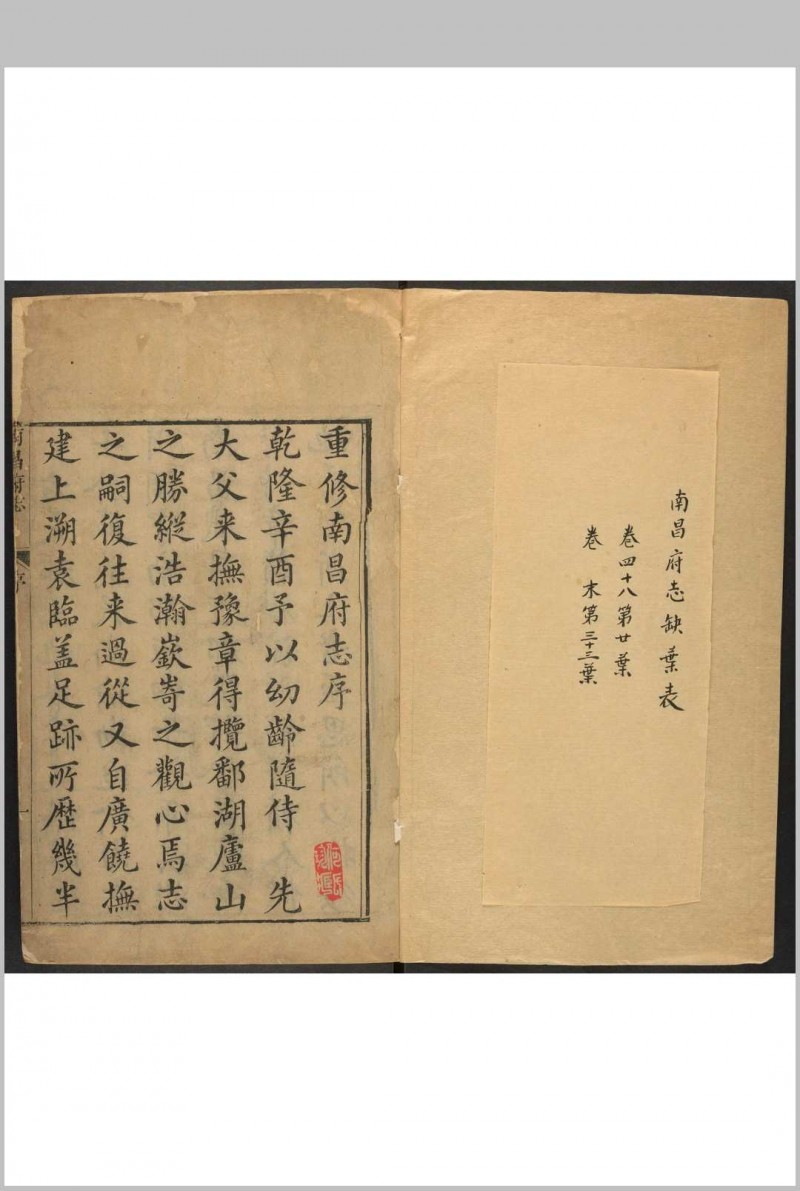 南昌府志缺葉表
卷四十八第廿葉
卷末第三十三葉
重修南昌府志序
乾隆辛酉予以幼齡隨侍 先
大父来撫豫章得攬鄱湖廬山
之勝縱浩瀚嶔崎之觀心焉志
之嗣復往来過從又自廣饒撫
建上溯袁臨盖足跡所歷幾半
南昌府志
序
一